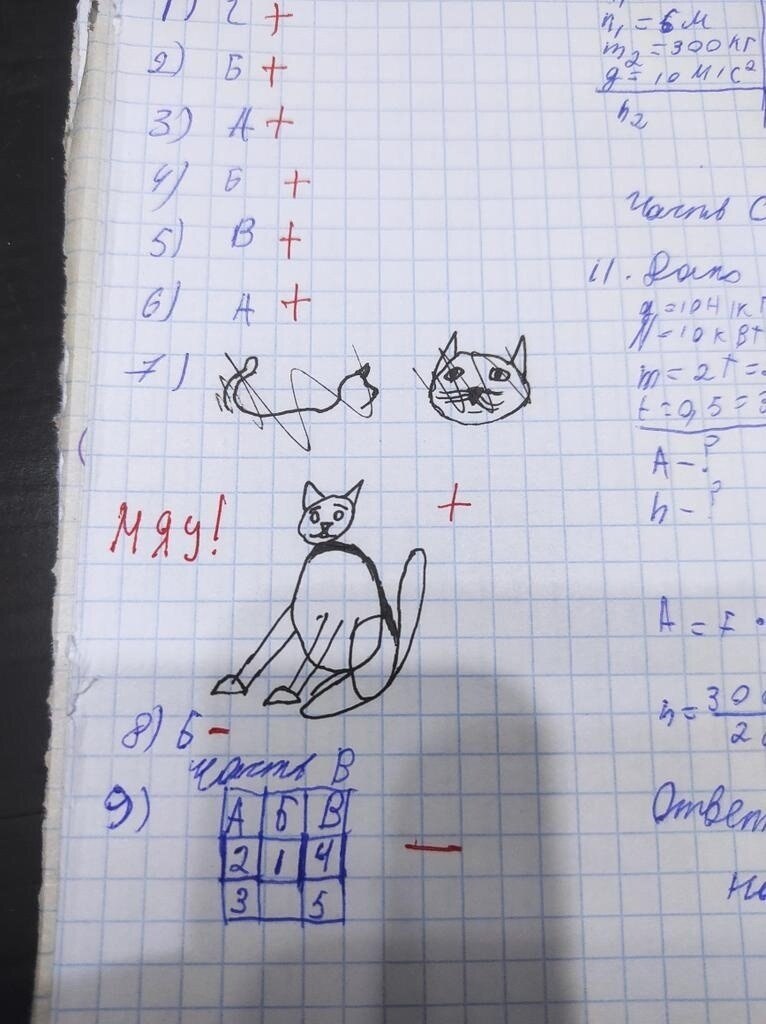 1) Г +
2) Б +
3) А +
4) Б +
5) В +
6) А +
7)
+
МЯУ!
8) Б -
Часть В
9)
А Б В
2 1 4
3 5
—
h₁ = 6 м
m₂ = 300 кг
g = 10 м/с²
h₂
Часть С
11. Дано
g = 10 Н/к
N = 10 кВт
m = 2 т =
t = 0,5 = 3
А - ?
h - ?
А =
h = 30
2
Ответ